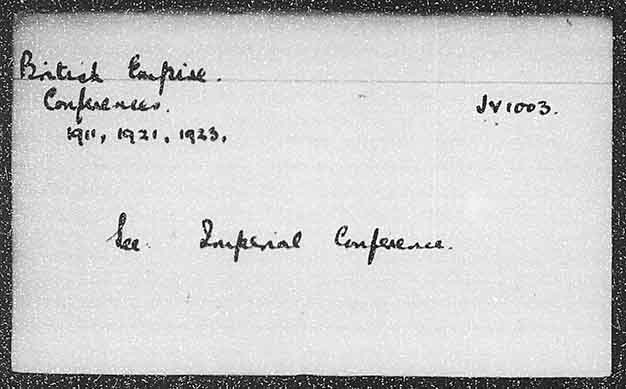 British Empire.
Conferences. JV1003.
1911, 1921, 1923.
See Imperial Conference.